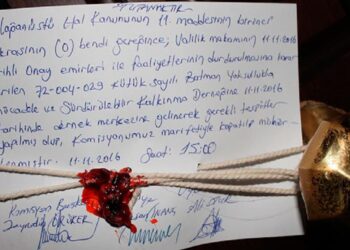 TUTANAKTIR
Olağanüstü Hal Kanununun 11. maddesinin birinci
fıkrasının (O) bendi gereğince; Valilik makamının 11.11.2016
tarihli Onay emirleri ile Faaliyetlerinin durdurulmasına karar
verilen 72-004-029 Kütük sayılı Batman Yoksullukla
Mücadele ve Sürdürülebilir Kalkınma Derneğine 11.11.2016
tarihinde dernek merkezine gelinerek gerekli tespitler
yapılmış olup, Komisyonumuz marifetiyle kapatılıp mühür-
lenmiştir. 11.11.2016 Saat: 15:00
Komisyon Başkanı Üye